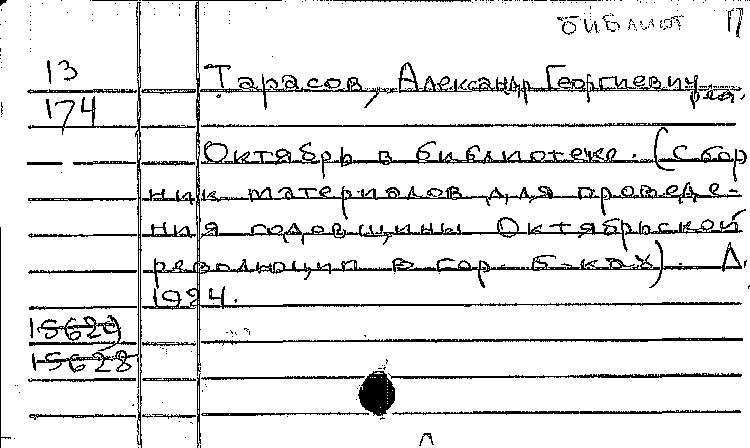 библиот П
13
174
Тарасов, Александр Георгиевич,
ред.
Октябрь в библиотеке. (Сбор
ник материалов для проведе-
ния годовщины Октябрьской
революции в гор. б-ках). Л.
1924.
15629
15628